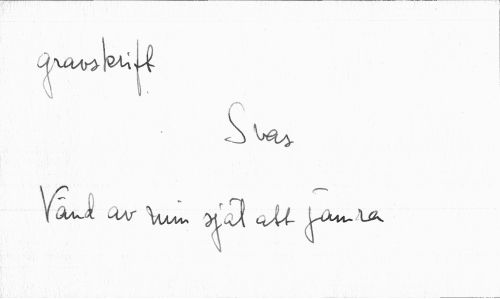 gravskrift
Svas
Vänd av min själ att jämra